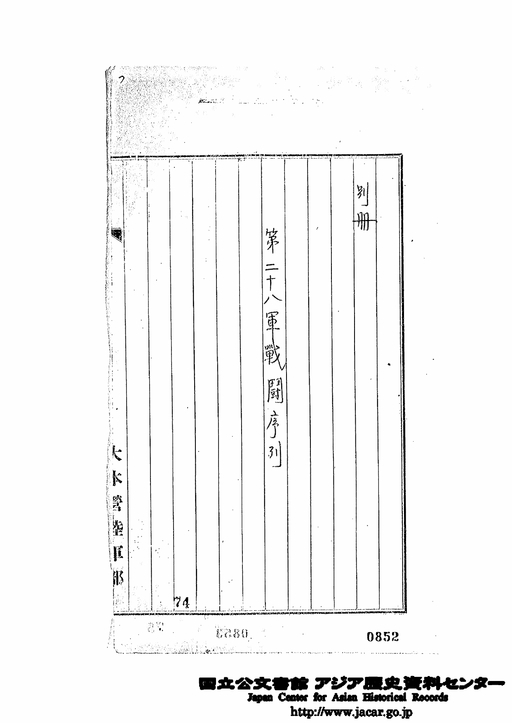 別冊
第二十八軍戰鬪序列
大本營陸軍部
74
0852
国立公文書館 アジア歴史資料センター
Japan Center for Asian Historical Records
http://www.jacar.go.jp